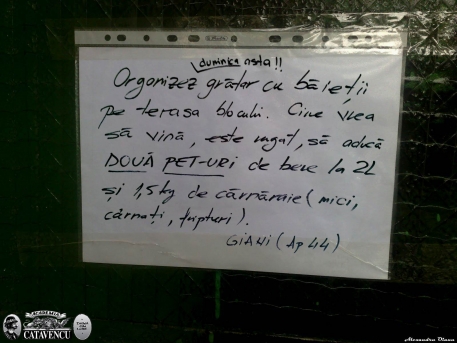 duminica asta!!
Organizez grătar cu băieții
pe terasa blocului. Cine vrea
să vină, este rugat, să aducă
DOUĂ PET-URI de bere la 2L
și 1,5 kg de cărnăraie (mici,
cârnați, fripturi).
GIANI (Ap 44)
ACADEMIA
CATAVENCU
Alexandru Diana